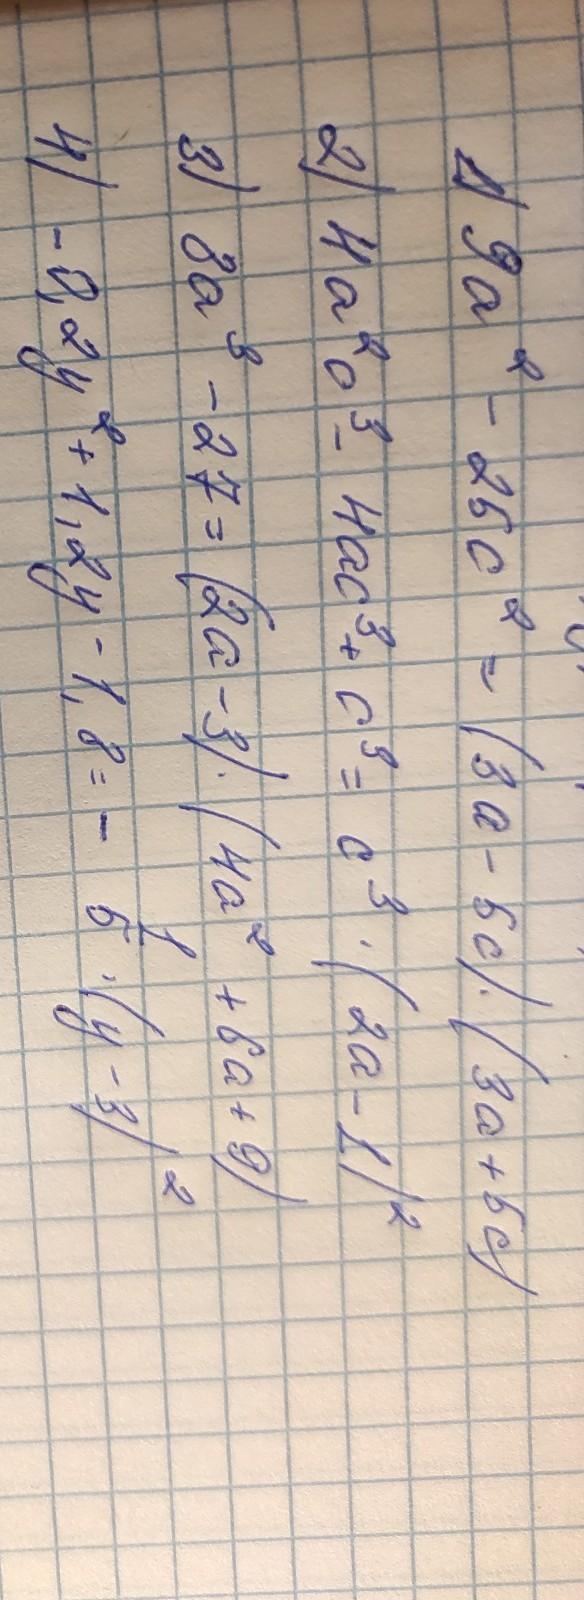 1) 9a² - 25c² = (3a - 5c) · (3a + 5c)
2) 4a²c³ - 4ac³ + c³ = c³ · (2a - 1)²
3) 8a³ - 27 = (2a - 3) · (4a² + 6a + 9)
4) -0,2y² + 1,2y - 1,8 = - 1/5 · (y - 3)²